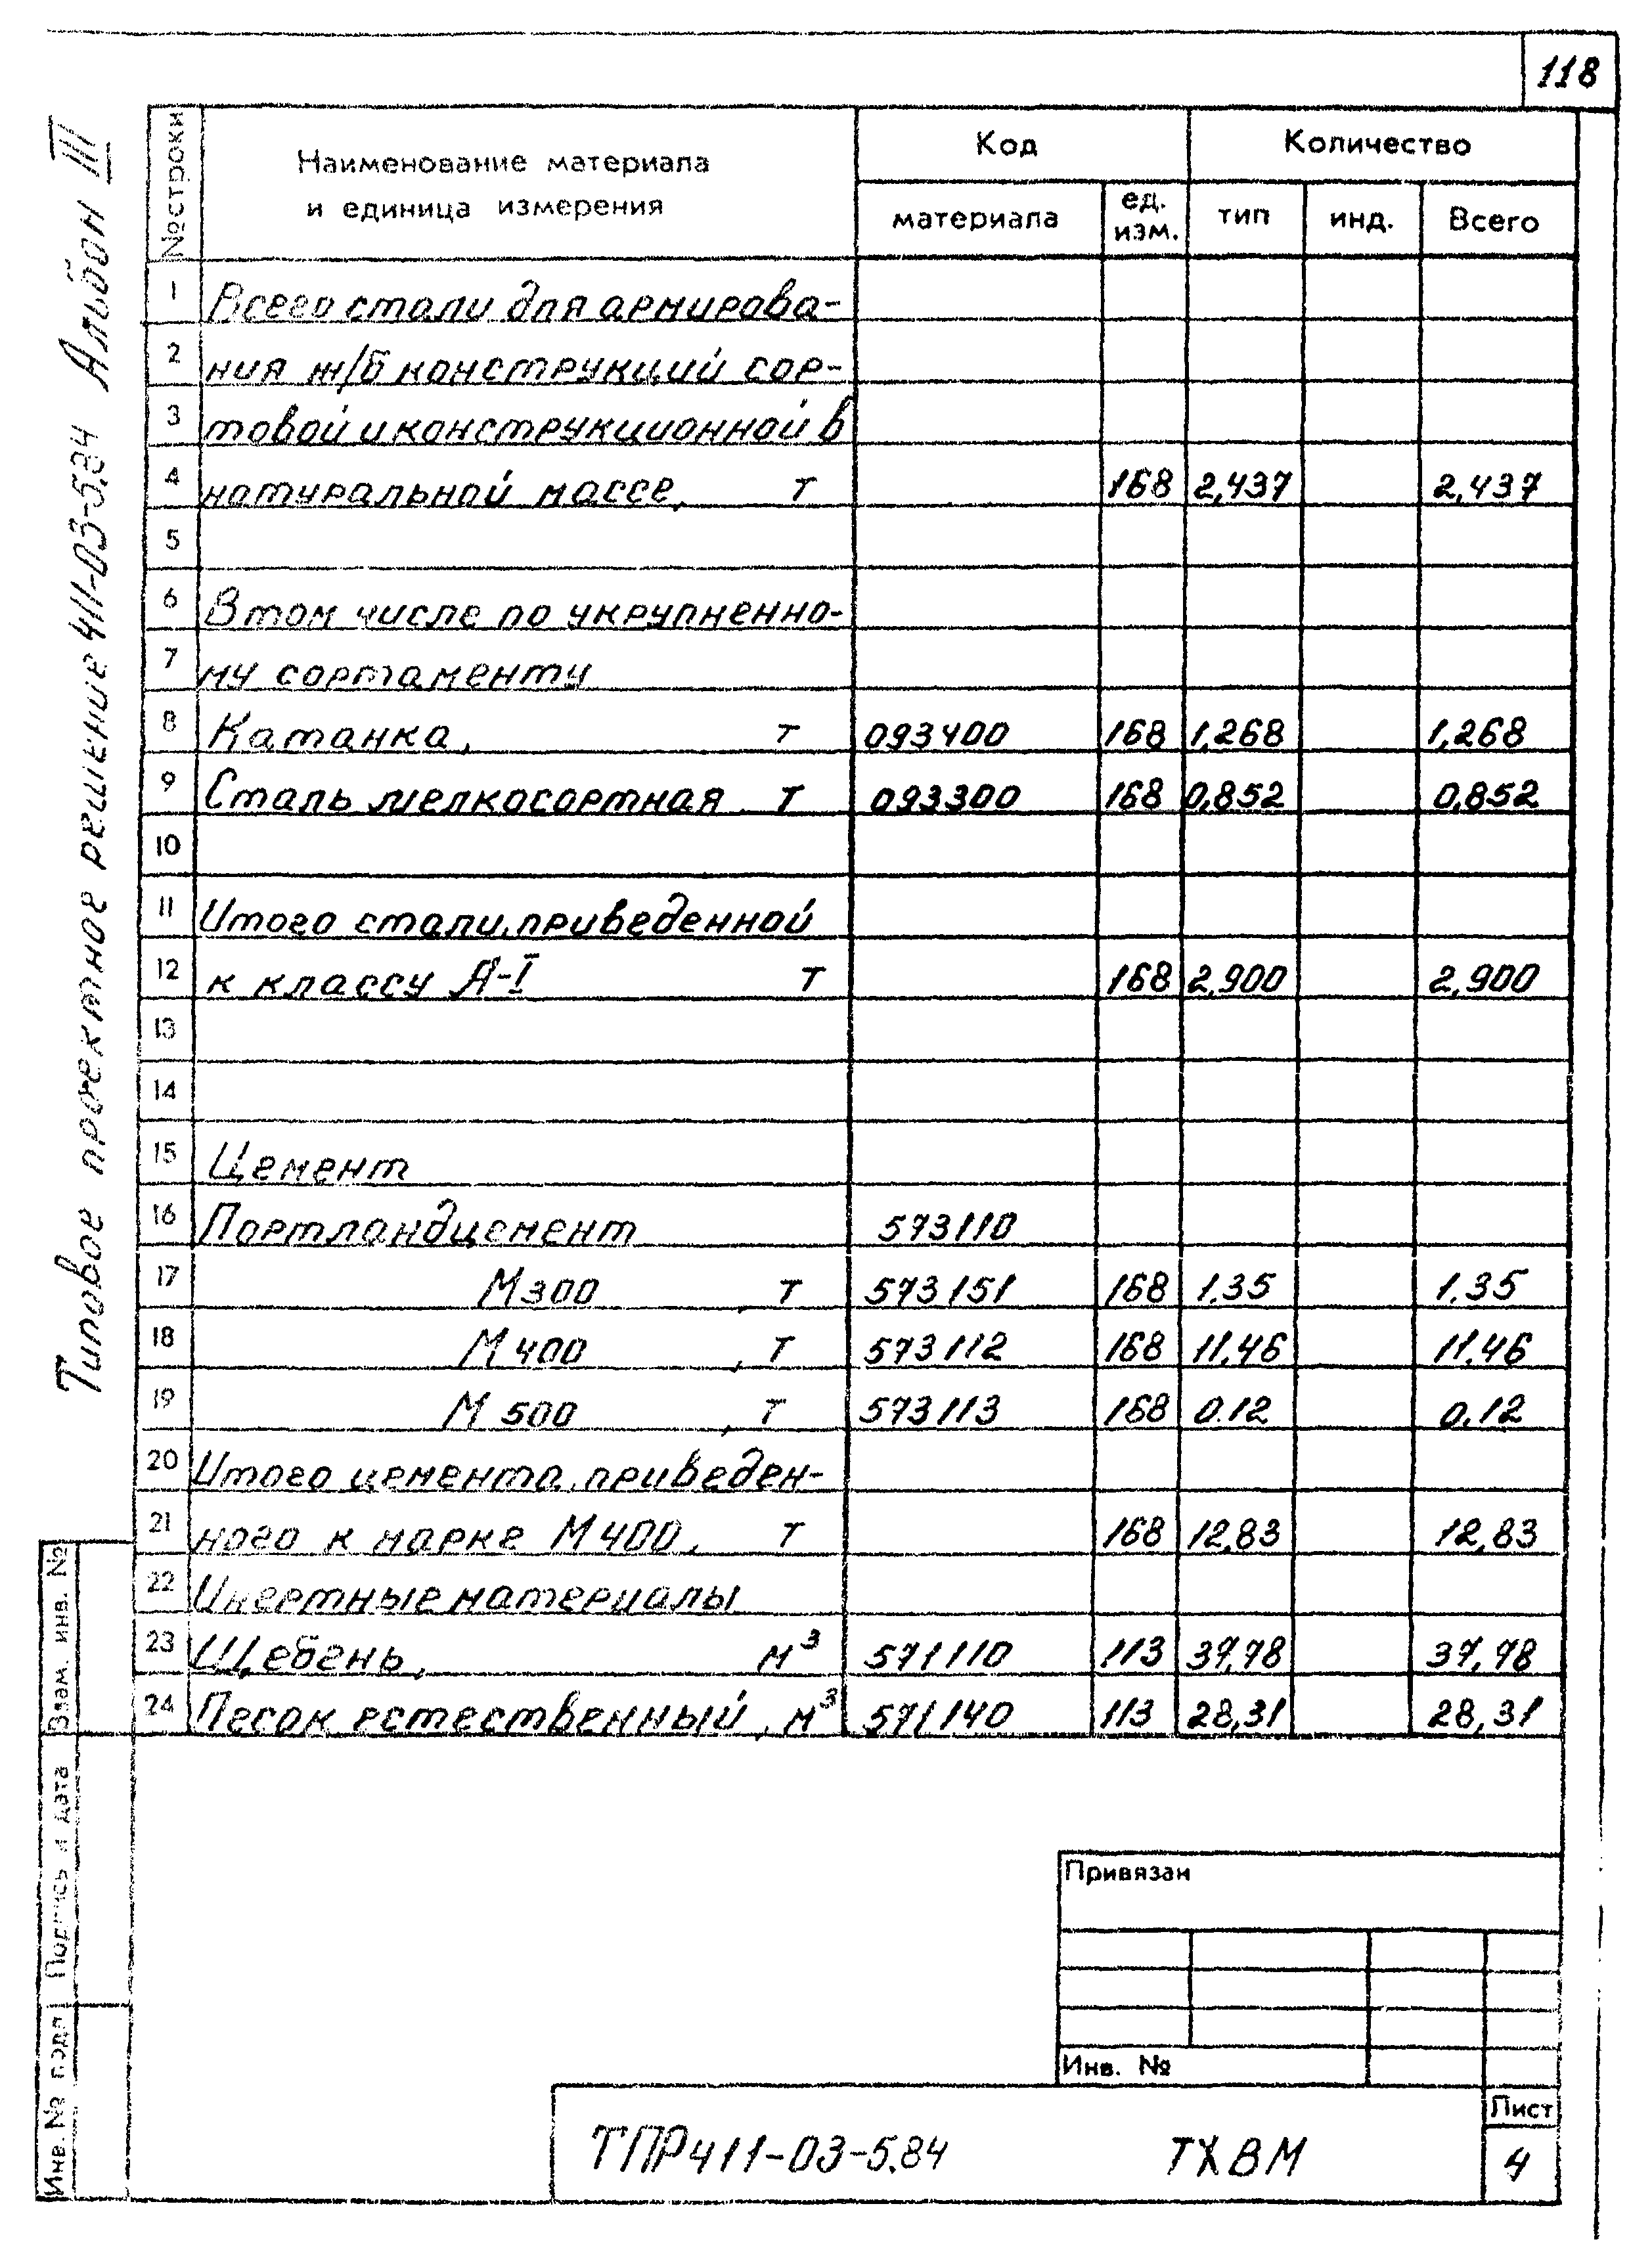 118
Типовое проектное решение 411-03-5.84 Альбом III
№ строки
Наименование материала
и единица измерения
Код
Количество
материала
ед.
изм.
тип
инд.
Всего
1 Всего стали для армирова-
2 ния ж/б конструкций сор-
3 товой и конструкционной в
4 натуральной массе, т 168 2,437 2,437
5
6 В том числе по укрупненно-
7 му сортаменту
8 Катанка, т 093400 168 1,268 1,268
9 Сталь мелкосортная, т 093300 168 0,852 0,852
10
11 Итого стали, приведенной
12 к классу А-I т 168 2,900 2,900
13
14
15 Цемент
16 Портландцемент 573110
17 М300 , т 573151 168 1.35 1.35
18 М400 , т 573112 168 11.46 11.46
19 М500 , т 573113 168 0.12 0.12
20 Итого цемента, приведен-
21 ного к марке М400, т 168 12,83 12,83
22 Инертные материалы
23 Щебень, м³ 571110 113 37,78 37,78
24 Песок естественный, м³ 571140 113 28,31 28,31
Взам. инв. №
Подпись и дата
Инв. № подл
Привязан
Инв. №
ТПР411-03-5.84 ТХ ВМ
Лист
4